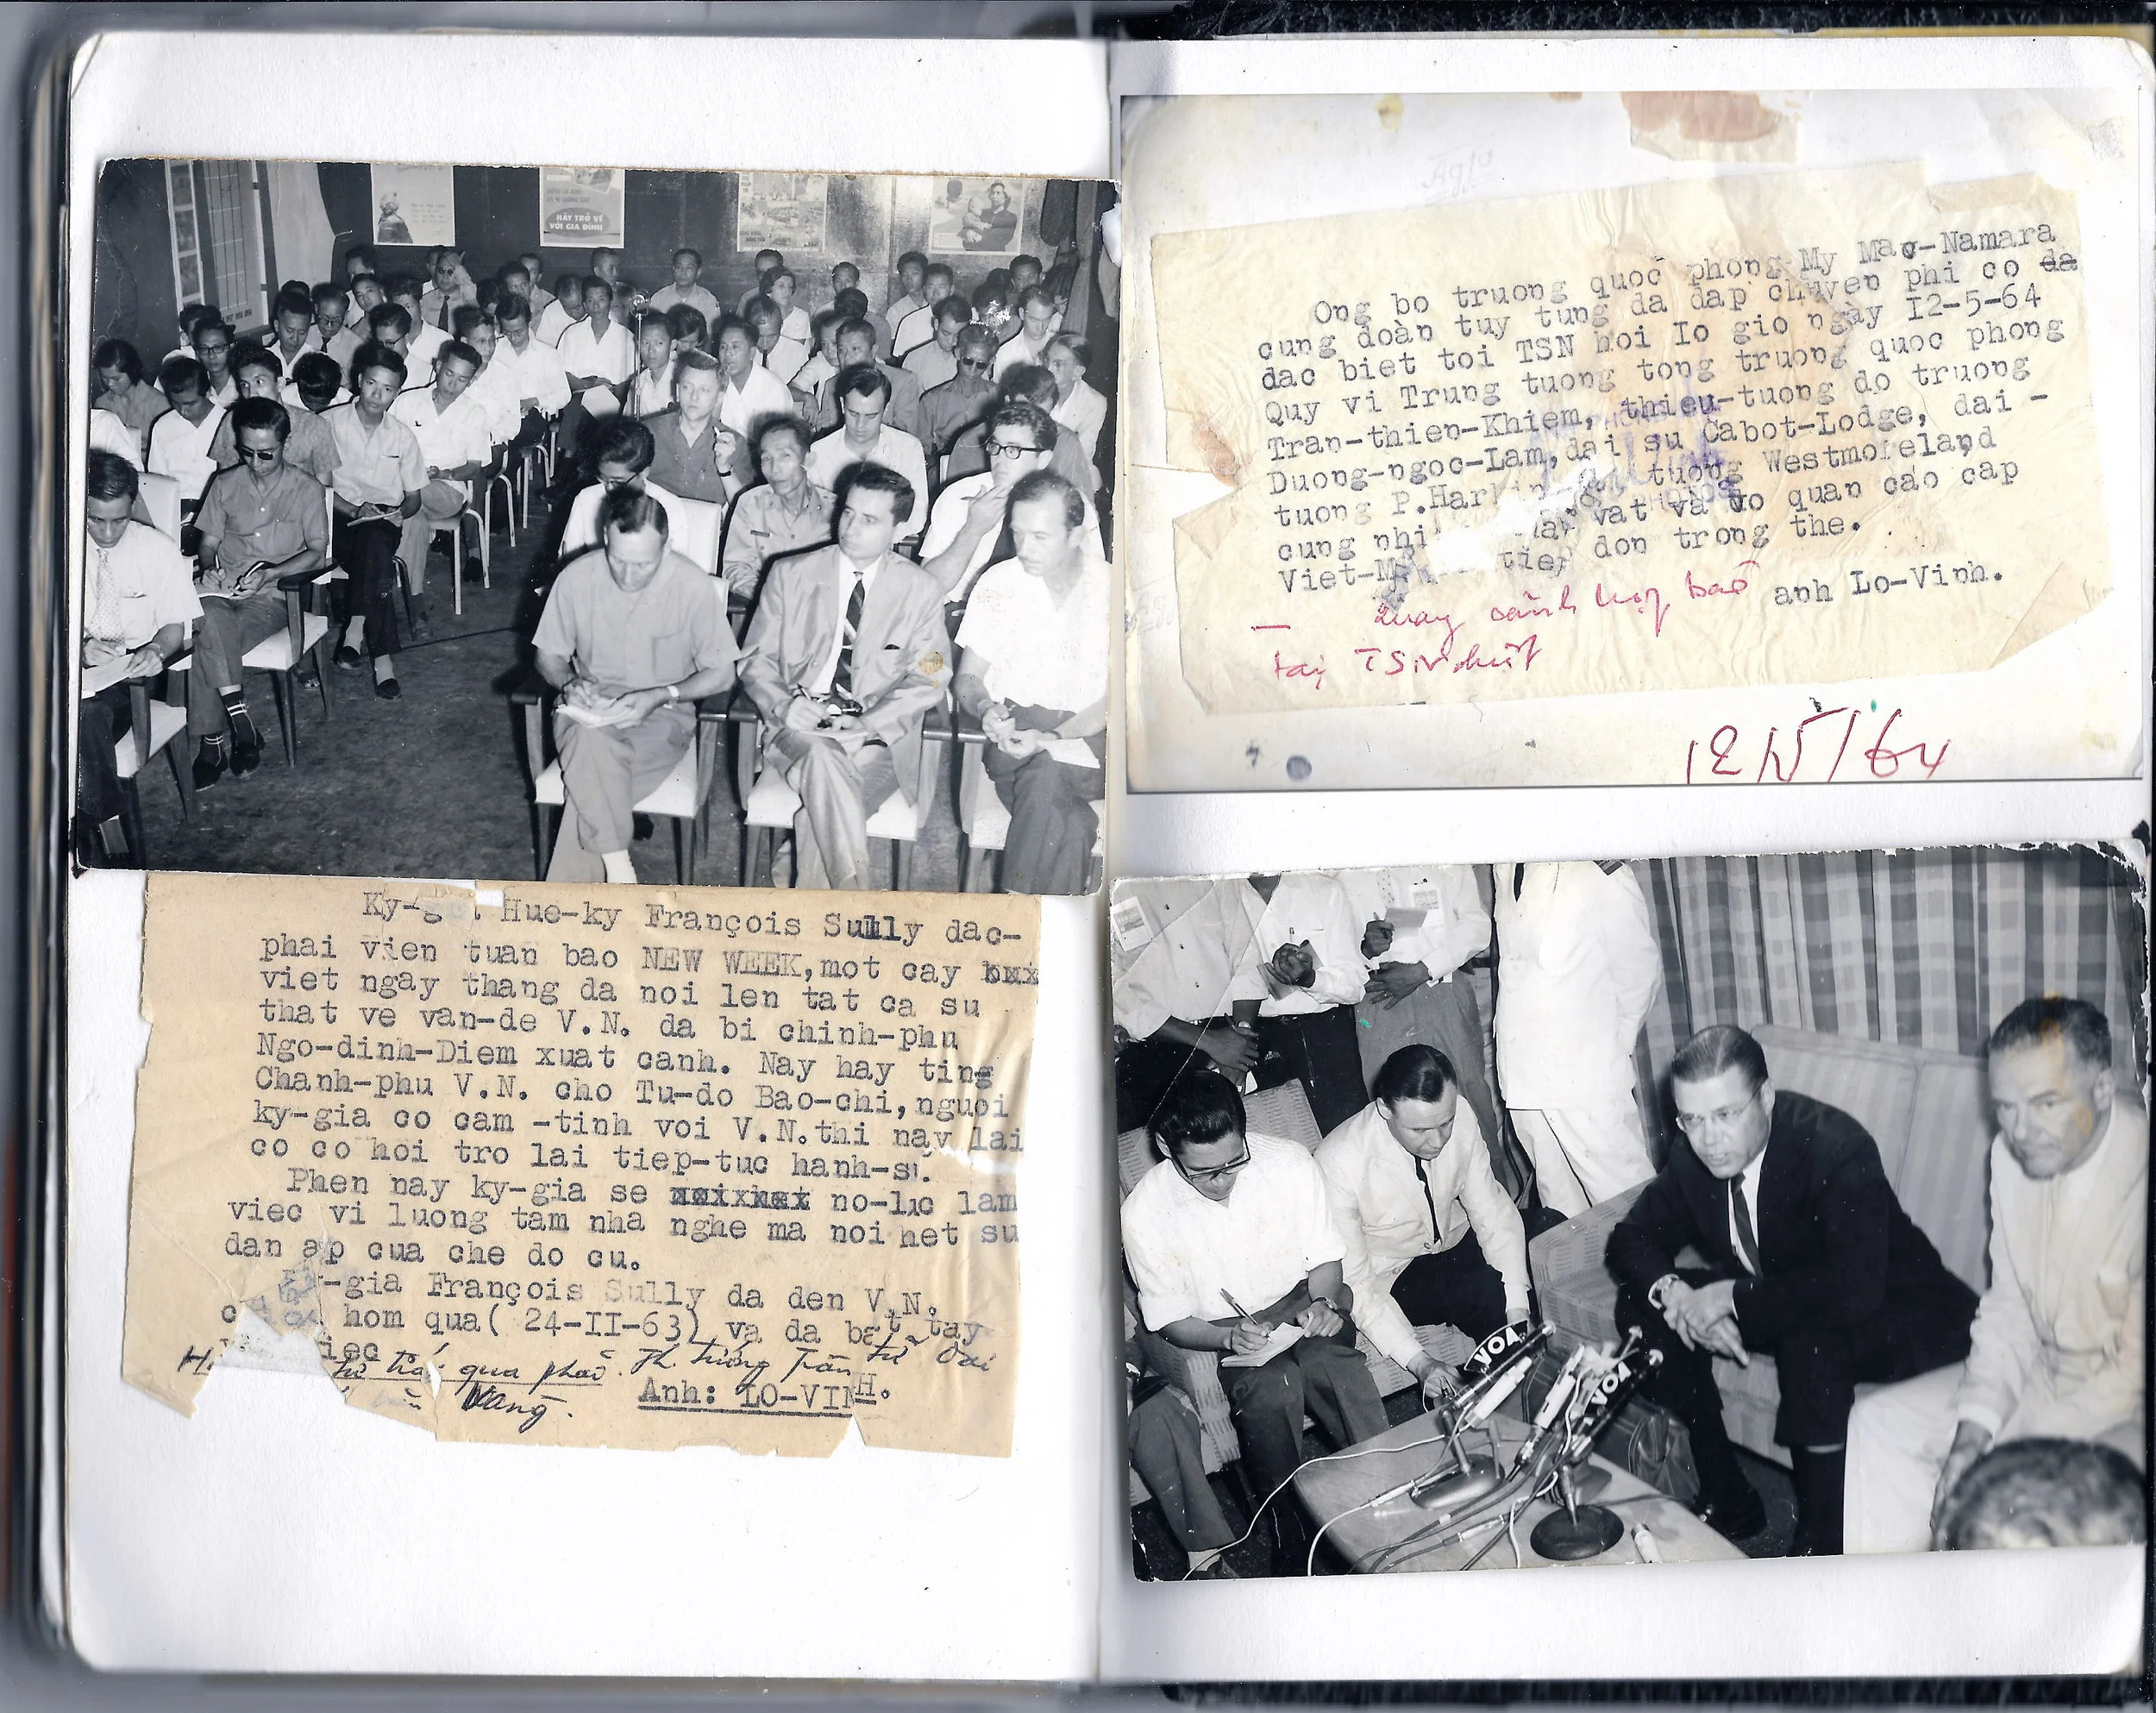 HÃY TRỞ VỀ
VỚI GIA ĐÌNH
Hue-ky François Sully dac-
phai vien tuan bao NEW WEEK, mot cay
viet ngay thang da noi len tat ca su
that ve van-de V.N. da bi chinh-phu
Ngo-dinh-Diem xuat canh. Nay hay ting
Chanh-phu V.N. cho Tu-do Bao-chi, nguoi
ky-gia co cam -tinh voi V.N. thi nay lai
co co hoi tro lai tiep-tuc hanh-su.
Phen nay ky-gia se no-luc lam
viec vi luong tam nha nghe ma noi het su
dan ap cua che do cu.
-gia François Sully da den V.N.
hom qua( 24-II-63) va da bat tay
iec
qua phải. Th. tướng Trần tử Oai
Vang.
Anh: LO-VINH.
Ong bo truong quoc phong My Mac-Namara
cung đoàn tuy tung da dap chuyen phi co da
dac biet toi TSN hoi Io gio ngày I2-5-64
Quy vi Trung tuong tong truong quoc phong
Tran-thien-Khiem, thieu-tuong do truong
Duong-ngoc-Lam, dai su Cabot-Lodge, dai -
tuong P.Harkin tuong Westmoreland
cung nhi vat va vo quan cao cap
Viet-M tiep don trong the.
anh Lo-Vinh.
— Quang cảnh họp báo
tại TSNhứt
12/5/64
VOA
VOA